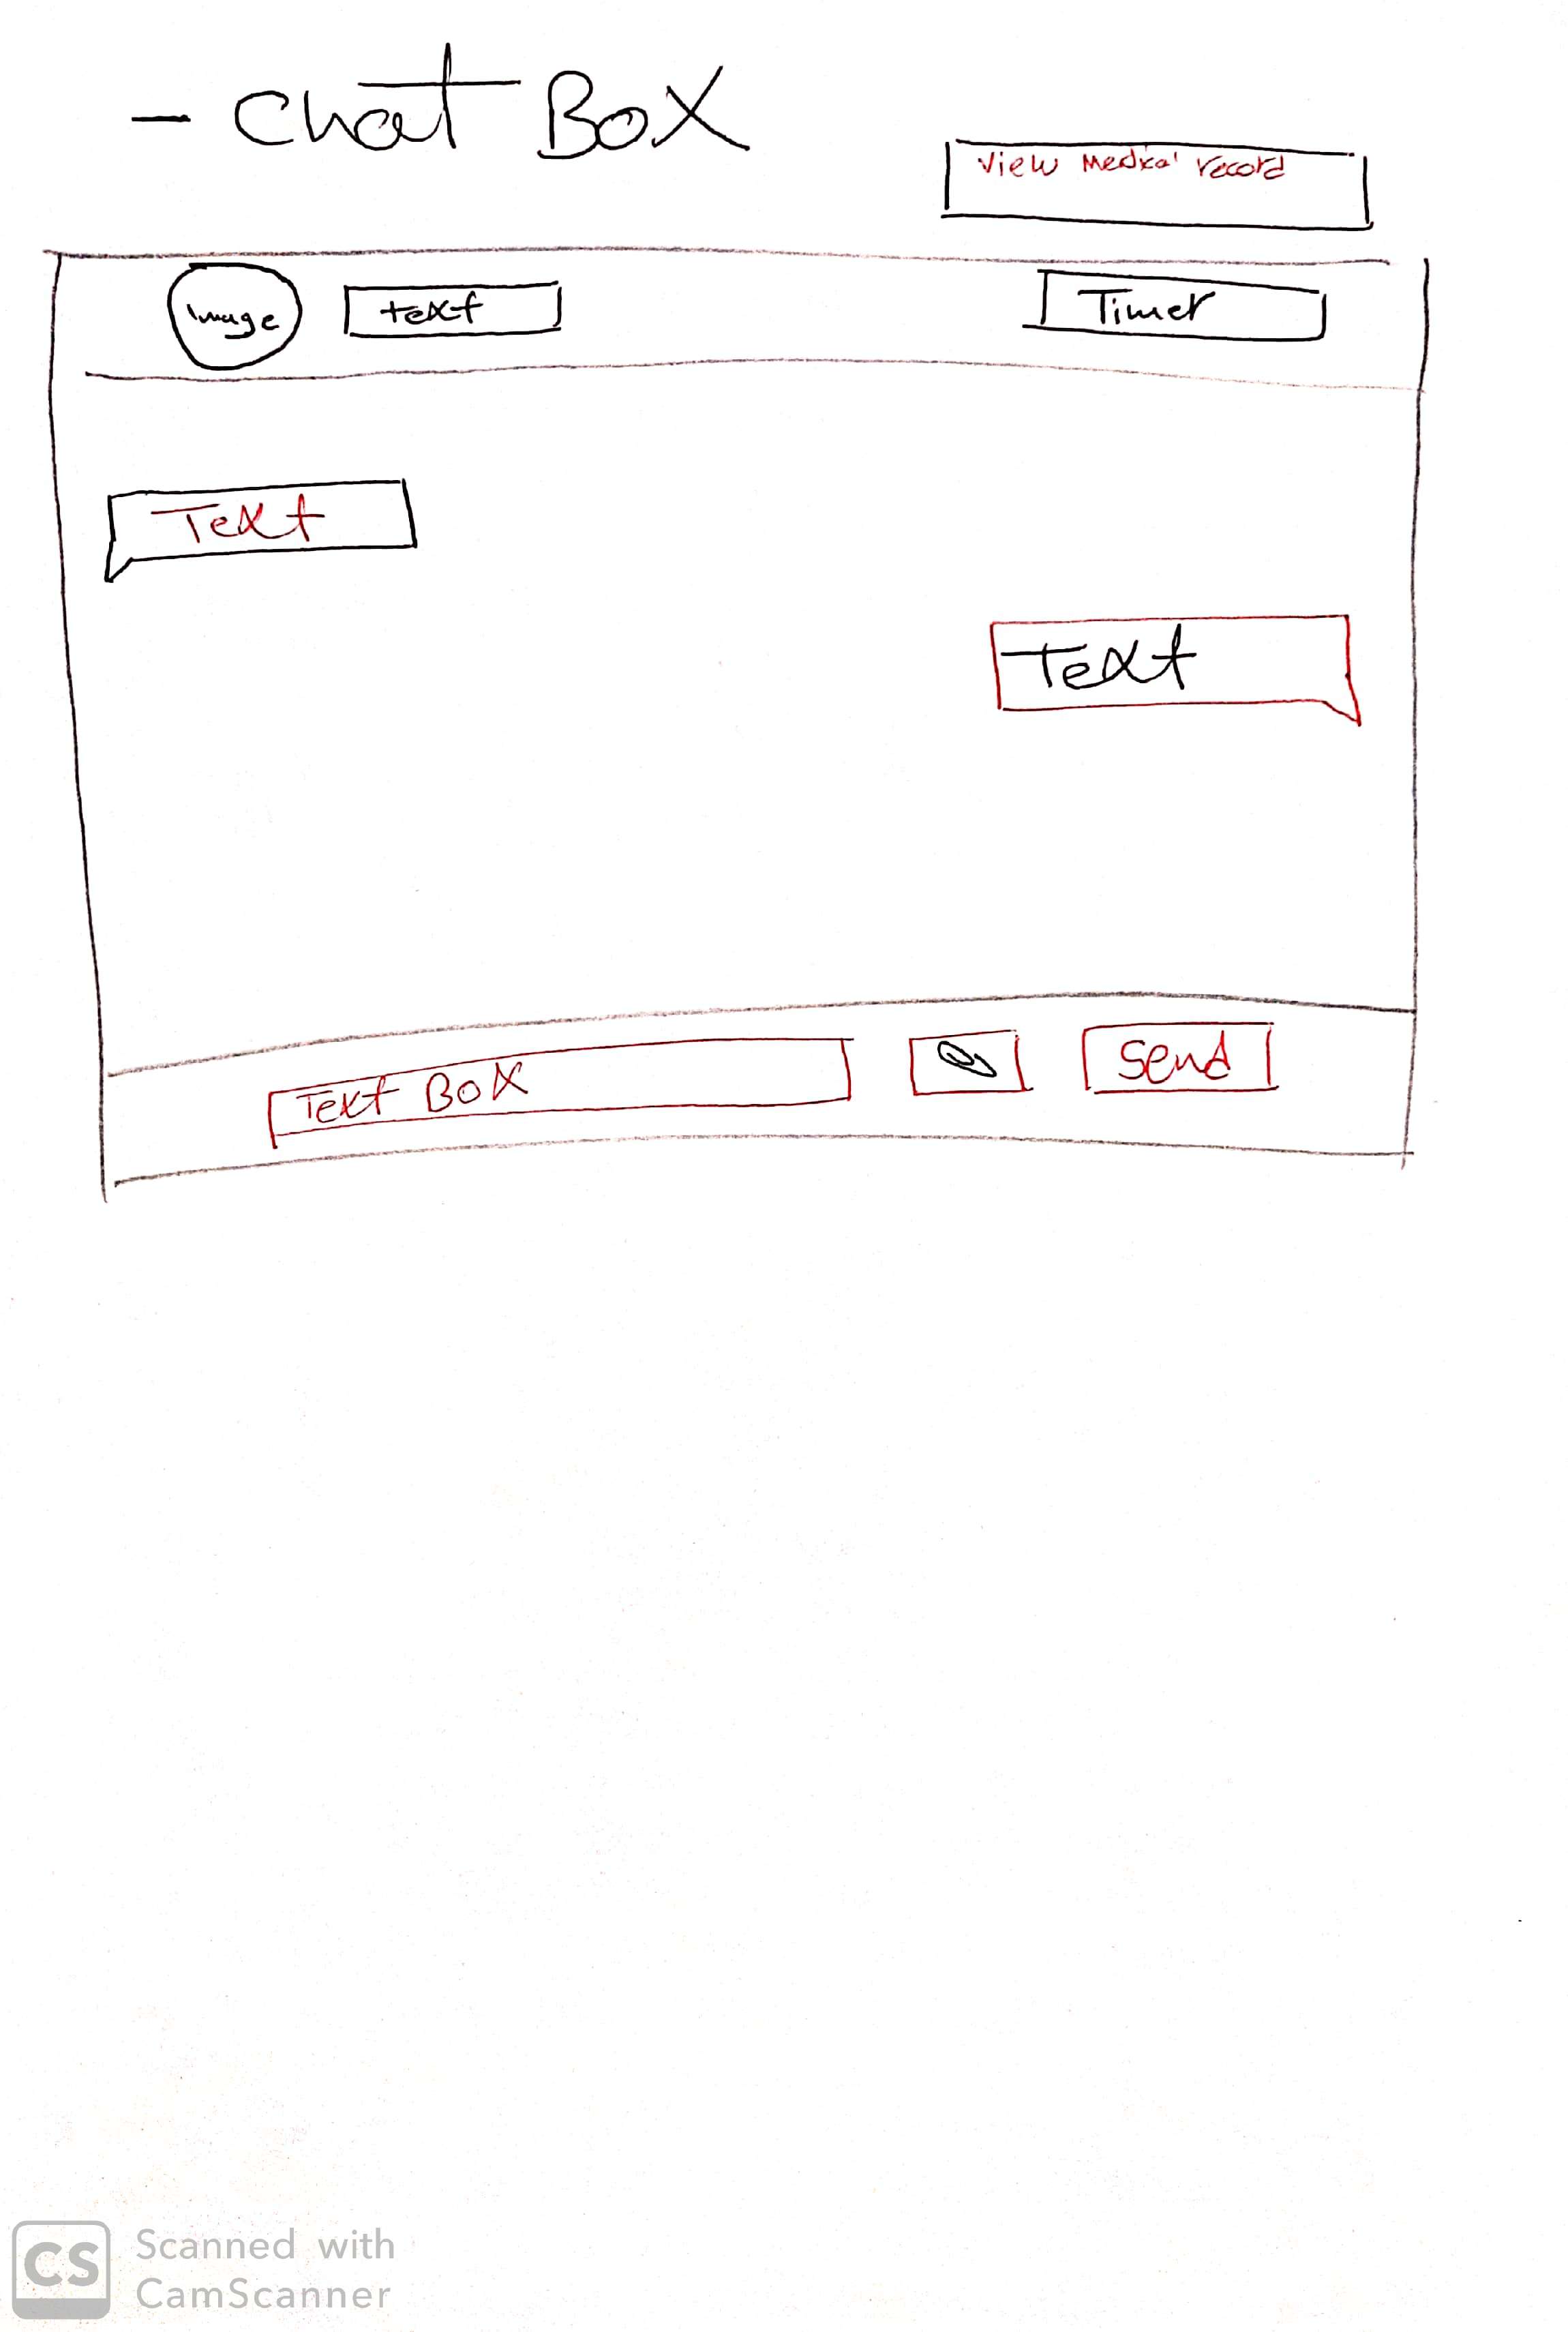 - Chat Box
View Medical record
Image
text
Timer
Text
Text
Text Box
Send
CS
Scanned with
CamScanner